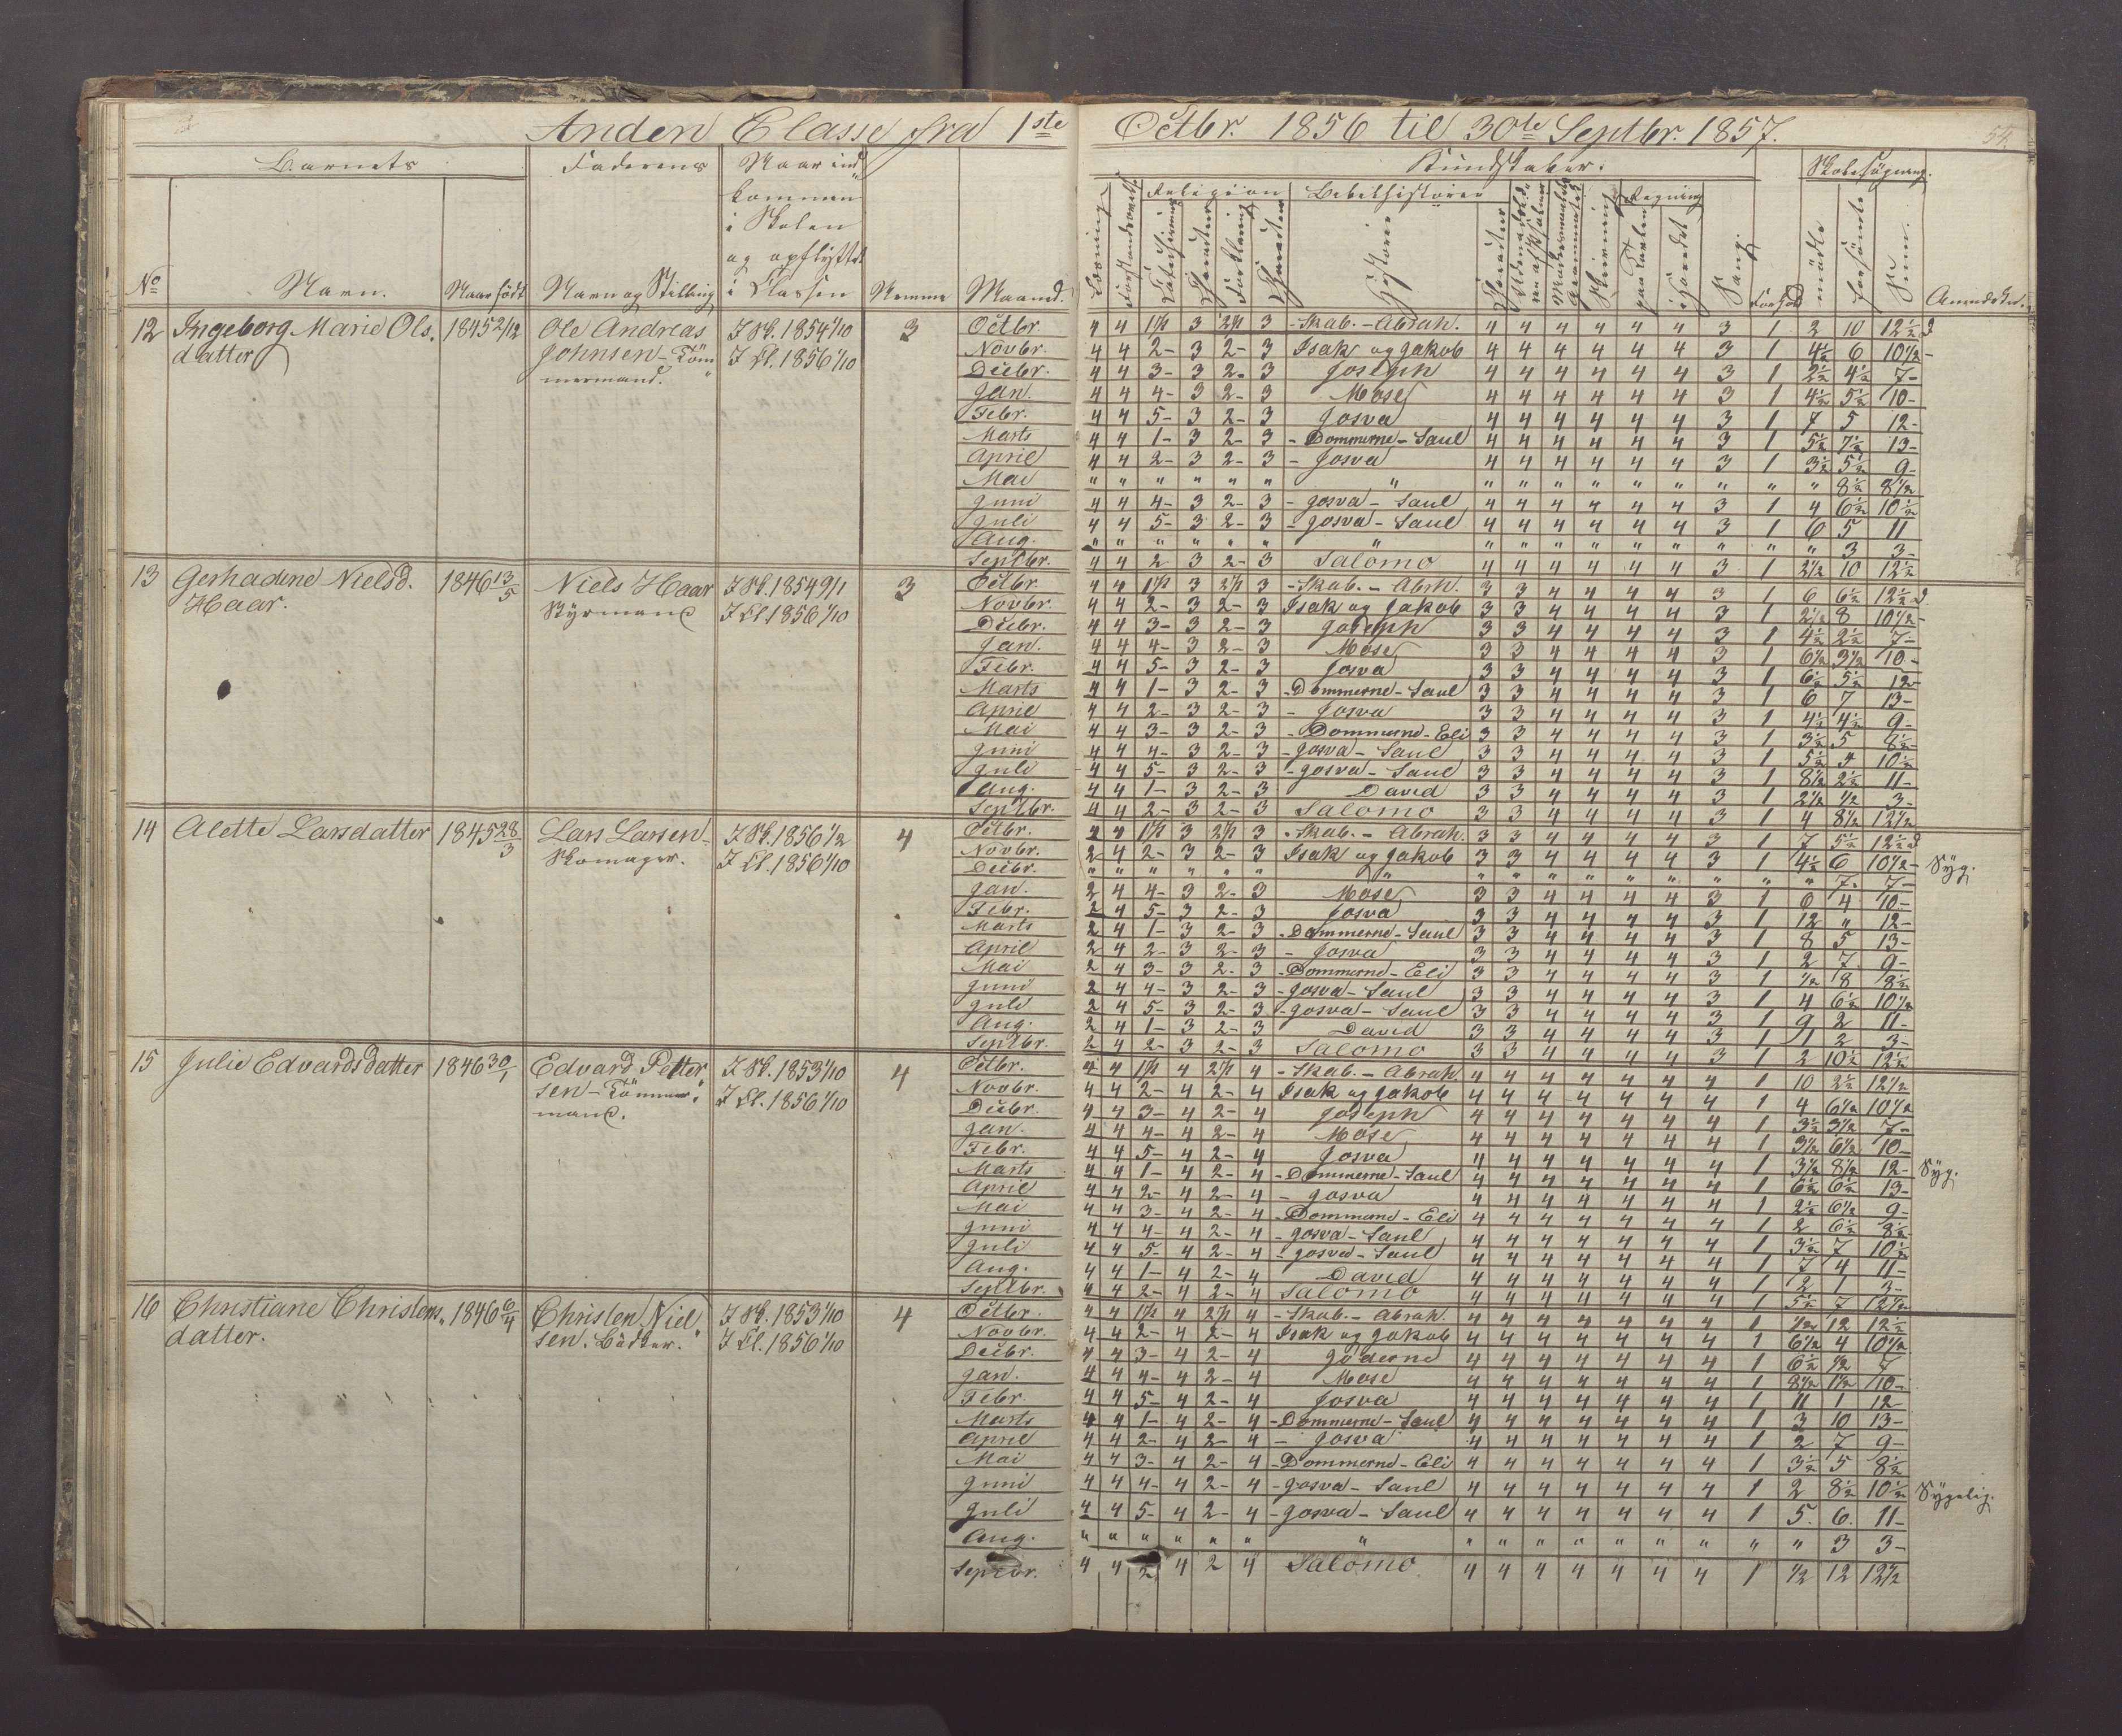 Anden Classe fra 1ste Octbr. 1856 til 30te Septbr. 1857.
Barnets Faderens Naar ind-
kommen
i Skolen
og opflyttet
No Navn. Naar født Navn og Stilling i Klassen Nemme Maaned.
Kundskaber. Skolesøgning.
Religion Bibelhistorie Regning
Læsning Forstandsøvelse Katekismus Charakter Forklaring Charakter Historie Charakter Skrivning paa Tavlen i Hovedet Sang. Forhold mødte forsømte Sum. Anmærkn.
12 Ingeborg Marie Ols. 1845 2/12 Ole Andreas I Sk. 1854 1/10 3
datter Johnsen - Töm I Cl. 1856 1/10
mermand.
Octbr. 4 4 1 1/2 3 2 1/2 3 - Skab. - Abrah. 4 4 4 4 4 4 3 1 2 10 12 1/2 d
Novbr. 4 4 2- 3 2- 3 Isak og Jakob 4 4 4 4 4 4 3 1 4 1/2 6 10 1/2 -
Decbr. 4 4 3- 3 2- 3 Joseph 4 4 4 4 4 4 3 1 2 1/2 4 1/2 7-
Jan. 4 4 4- 3 2- 3 Mose 4 4 4 4 4 4 3 1 4 1/2 5 1/2 10-
Febr. 4 4 5- 3 2- 3 Josva 4 4 4 4 4 4 3 1 7 5 12-
Marts 4 4 1- 3 2- 3 - Dommerne - Saul 4 4 4 4 4 4 3 1 5 1/2 7 1/2 13-
April 4 4 2- 3 2- 3 - Josva 4 4 4 4 4 4 3 1 3 1/2 5 1/2 9-
Mai " " " " " " " " " " " " " " " " 8 1/2 8 1/2
Juni 4 4 4- 3 2- 3 - Josva - Saul 4 4 4 4 4 4 3 1 4 6 1/2 10 1/2
Juli 4 4 5- 3 2- 3 - Josva - Saul 4 4 4 4 4 4 3 1 6 5 11
Aug. " " " " " " " " " " " " " " " " 3 3-
Septbr. 4 4 2 3 2- 3 Salomo 4 4 4 4 4 4 3 1 2 1/2 10 12 1/2
13 Gerhadine Nielsd. 1846 13/5 Niels Haar I Sk. 1854 9/1 3
Haar. Styrmand I Cl. 1856 1/10
Octbr. 4 4 1 1/2 3 2 1/2 3 - Skab. - Abrh. 3 3 4 4 4 4 3 1 6 6 1/2 12 1/2 d.
Novbr. 4 4 2- 3 2- 3 Isak og Jakob 3 3 4 4 4 4 3 1 2 1/2 8 10 1/2 -
Decbr. 4 4 3- 3 2- 3 Joseph 3 3 4 4 4 4 3 1 4 1/2 2 1/2 7-
Jan. 4 4 4- 3 2- 3 Mose 3 3 4 4 4 4 3 1 6 1/2 3 1/2 10-
Febr. 4 4 5- 3 2- 3 Josva 3 3 4 4 4 4 3 1 6 1/2 5 1/2 12-
Marts 4 4 1- 3 2- 3 - Dommerne - Saul 3 3 4 4 4 4 3 1 6 7 13-
April 4 4 2- 3 2- 3 - Josva 3 3 4 4 4 4 3 1 4 1/2 4 1/2 9-
Mai 4 4 3- 3 2- 3 - Dommerne - Eli 3 3 4 4 4 4 3 1 3 1/2 5 8 1/2 -
Juni 4 4 4- 3 2- 3 - Josva - Saul 3 3 4 4 4 4 3 1 5 1/2 5 10 1/2
Juli 4 4 5- 3 2- 3 - Josva - Saul 3 3 4 4 4 4 3 1 8 1/2 2 1/2 11-
Aug. 4 4 1- 3 2- 3 David 3 3 4 4 4 4 3 1 2 1/2 1/2 3-
Septbr. 4 4 2- 3 2- 3 Salomo 3 3 4 4 4 4 3 1 4 8 1/2 12 1/2
14 Alette Larsdatter 1845 28/3 Lars Larsen - I Sk. 1856 1/2 4
Skomager. I Cl. 1856 1/10
Octbr. 4 1 1/2 3 2 1/2 3 - Skab. - Abrah. 3 3 4 4 4 4 3 1 7 5 1/2 12 1/2 d
Novbr. 2 4 2- 3 2- 3 Isak og Jakob 3 3 4 4 4 4 3 1 4 1/2 6 10 1/2 - Syg.
Decbr. " " " " " " " " " " " " " " " " 7- 7-
Jan. 2 4 4- 3 2- 3 Mose 3 3 4 4 4 4 3 1 6 4 10-
Febr. 2 4 5- 3 2- 3 Josva 3 3 4 4 4 4 3 1 12 " 12-
Marts 2 4 1- 3 2- 3 - Dommerne - Saul 3 3 4 4 4 4 3 1 8 5 13-
April 2 4 2- 3 2- 3 - Josva 3 3 4 4 4 4 3 1 2 7 9-
Mai 2 4 3- 3 2- 3 - Dommerne - Eli 3 3 4 4 4 4 3 1 1/2 8 8 1/2
Juni 2 4 4- 3 2- 3 - Josva - Saul 3 3 4 4 4 4 3 1 4 6 1/2 10 1/2
Juli 2 4 5- 3 2- 3 - Josva - Saul 3 3 4 4 4 4 3 1 9 2 11-
Aug. 2 4 1- 3 2- 3 David 3 3 4 4 4 4 3 1 1 2 3-
Septbr. 2 4 2- 3 2- 3 Salomo 3 3 4 4 4 4 3 1 2 10 1/2 12 1/2
15 Julie Edvardsdatter 1846 30/1 Edvard Petter I Sk. 1853 1/10 4
sen - Tömmer I Cl. 1856 1/10
mand.
Octbr. 4 4 1 1/2 4 2 1/2 4 - Skab. - Abrah. 4 4 4 4 4 4 4 1 10 2 1/2 12 1/2
Novbr. 4 4 2- 4 2- 4 Isak og Jakob 4 4 4 4 4 4 4 1 4 6 1/2 10 1/2
Decbr. 4 4 3- 4 2- 4 Joseph 4 4 4 4 4 4 4 1 3 1/2 3 1/2 7-
Jan. 4 4 4- 4 2- 4 Mose 4 4 4 4 4 4 4 1 3 1/2 6 1/2 10-
Febr. 4 4 5- 4 2- 4 Josva 4 4 4 4 4 4 4 1 3 1/2 8 1/2 12- Syg.
Marts 4 4 1- 4 2- 4 - Dommerne - Saul 4 4 4 4 4 4 4 1 6 1/2 6 1/2 13-
April 4 4 2- 4 2- 4 - Josva 4 4 4 4 4 4 4 1 2 1/2 6 1/2 9-
Mai 4 4 3- 4 2- 4 - Dommerne - Eli 4 4 4 4 4 4 4 1 2 6 1/2 8 1/2
Juni 4 4 4- 4 2- 4 - Josva - Saul 4 4 4 4 4 4 4 1 3 1/2 7 10 1/2
Juli 4 4 5- 4 2- 4 - Josva - Saul 4 4 4 4 4 4 4 1 7 4 11-
Aug. 4 4 1- 4 2- 4 David 4 4 4 4 4 4 4 1 2 1 3-
Septbr. 4 4 2- 4 2- 4 Salomo 4 4 4 4 4 4 4 1 5 1/2 7 12 1/2
16 Christiane Christens 1846 6/4 Christen Niel I Sk. 1853 1/10 4
datter. sen. Bödker. I Cl. 1856 1/10
Octbr. 4 4 1 1/2 4 2 1/2 4 - Skab. - Abrah. 4 4 4 4 4 4 4 1 1/2 12 12 1/2
Novbr. 4 4 2- 4 2- 4 Isak og Jakob 4 4 4 4 4 4 4 1 6 1/2 4 10 1/2
Decbr. 4 4 3- 4 2- 4 Jöderne 4 4 4 4 4 4 4 1 6 1/2 1/2 7
Jan. 4 4 4- 4 2- 4 Mose 4 4 4 4 4 4 4 1 8 1/2 1 1/2 10-
Febr. 4 4 5- 4 2- 4 Josva 4 4 4 4 4 4 4 1 11 1 12
Marts 4 4 1- 4 2- 4 - Dommerne - Saul 4 4 4 4 4 4 4 1 3 10 13-
April 4 4 2- 4 2- 4 - Josva 4 4 4 4 4 4 4 1 2 7 9-
Mai 4 4 3- 4 2- 4 - Dommerne - Eli 4 4 4 4 4 4 4 1 3 1/2 5 8 1/2
Juni 4 4 4- 4 2- 4 - Josva - Saul 4 4 4 4 4 4 4 1 2 8 1/2 10 1/2 Sygelig.
Juli 4 4 5- 4 2- 4 - Josva - Saul 4 4 4 4 4 4 4 1 5. 6. 11-
Aug. " " " " " " " " " " " " " " " " 3 3-
Septbr. 4 4 2 4 2 4 Salomo. 4 4 4 4 4 4 4 1 1/2 12 12 1/2